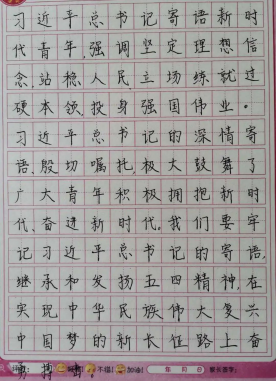 习近平总书记寄语新时
代青年,强调坚定理想信
念,站稳人民立场练就过
硬本领,投身强国伟业。
习近平总书记的深情寄
语,殷切嘱托,极大鼓舞了
广大青年积极拥抱新时
代、奋进新时代。我们要牢
记习近平总书记的寄语,
继承和发扬五四精神,在
实现中华民族伟大复兴
中国梦的新长征路上奋
勇搏击。